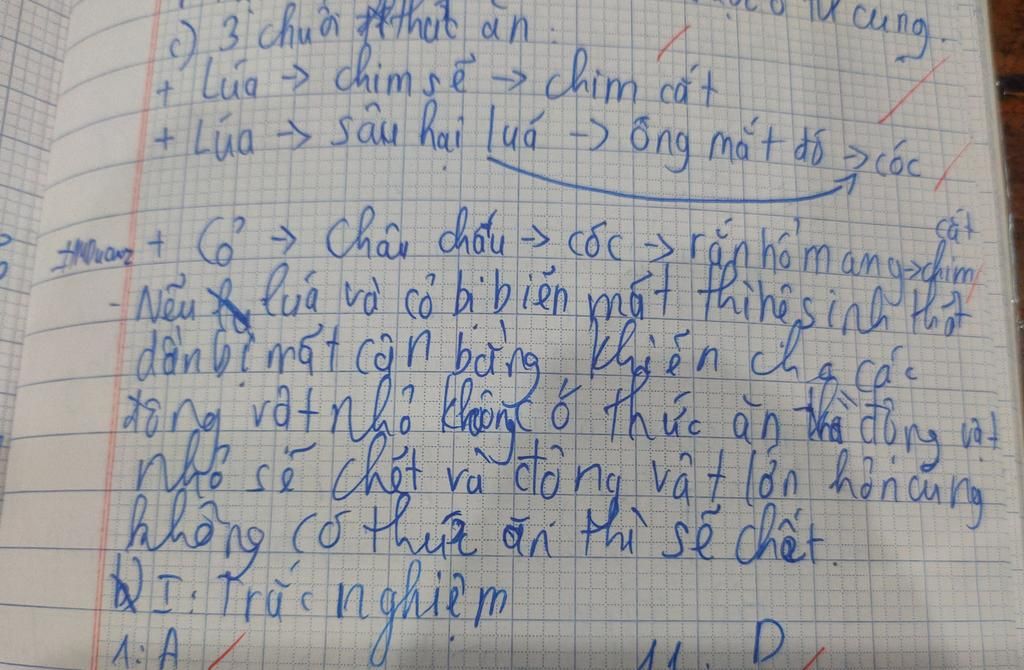 tử cung.
c) 3 chuỗi thức ăn:
+ Lúa → chim sẻ → chim cắt
+ Lúa → sâu hại luá → ông mắt đỏ → cóc
+ Cỏ → châu chấu → cóc → rắn hổ mang → chim cắt
- Nếu lúa và cỏ bị biến mất thì hệ sinh thái
dần bị mất cân bằng khiến cho các
động vật nhỏ không có thức ăn thì động vật
nhỏ sẽ chết và động vật lớn hơn cũng
không có thức ăn thì sẽ chết.
I: Trắc nghiệm
1: A 11. D